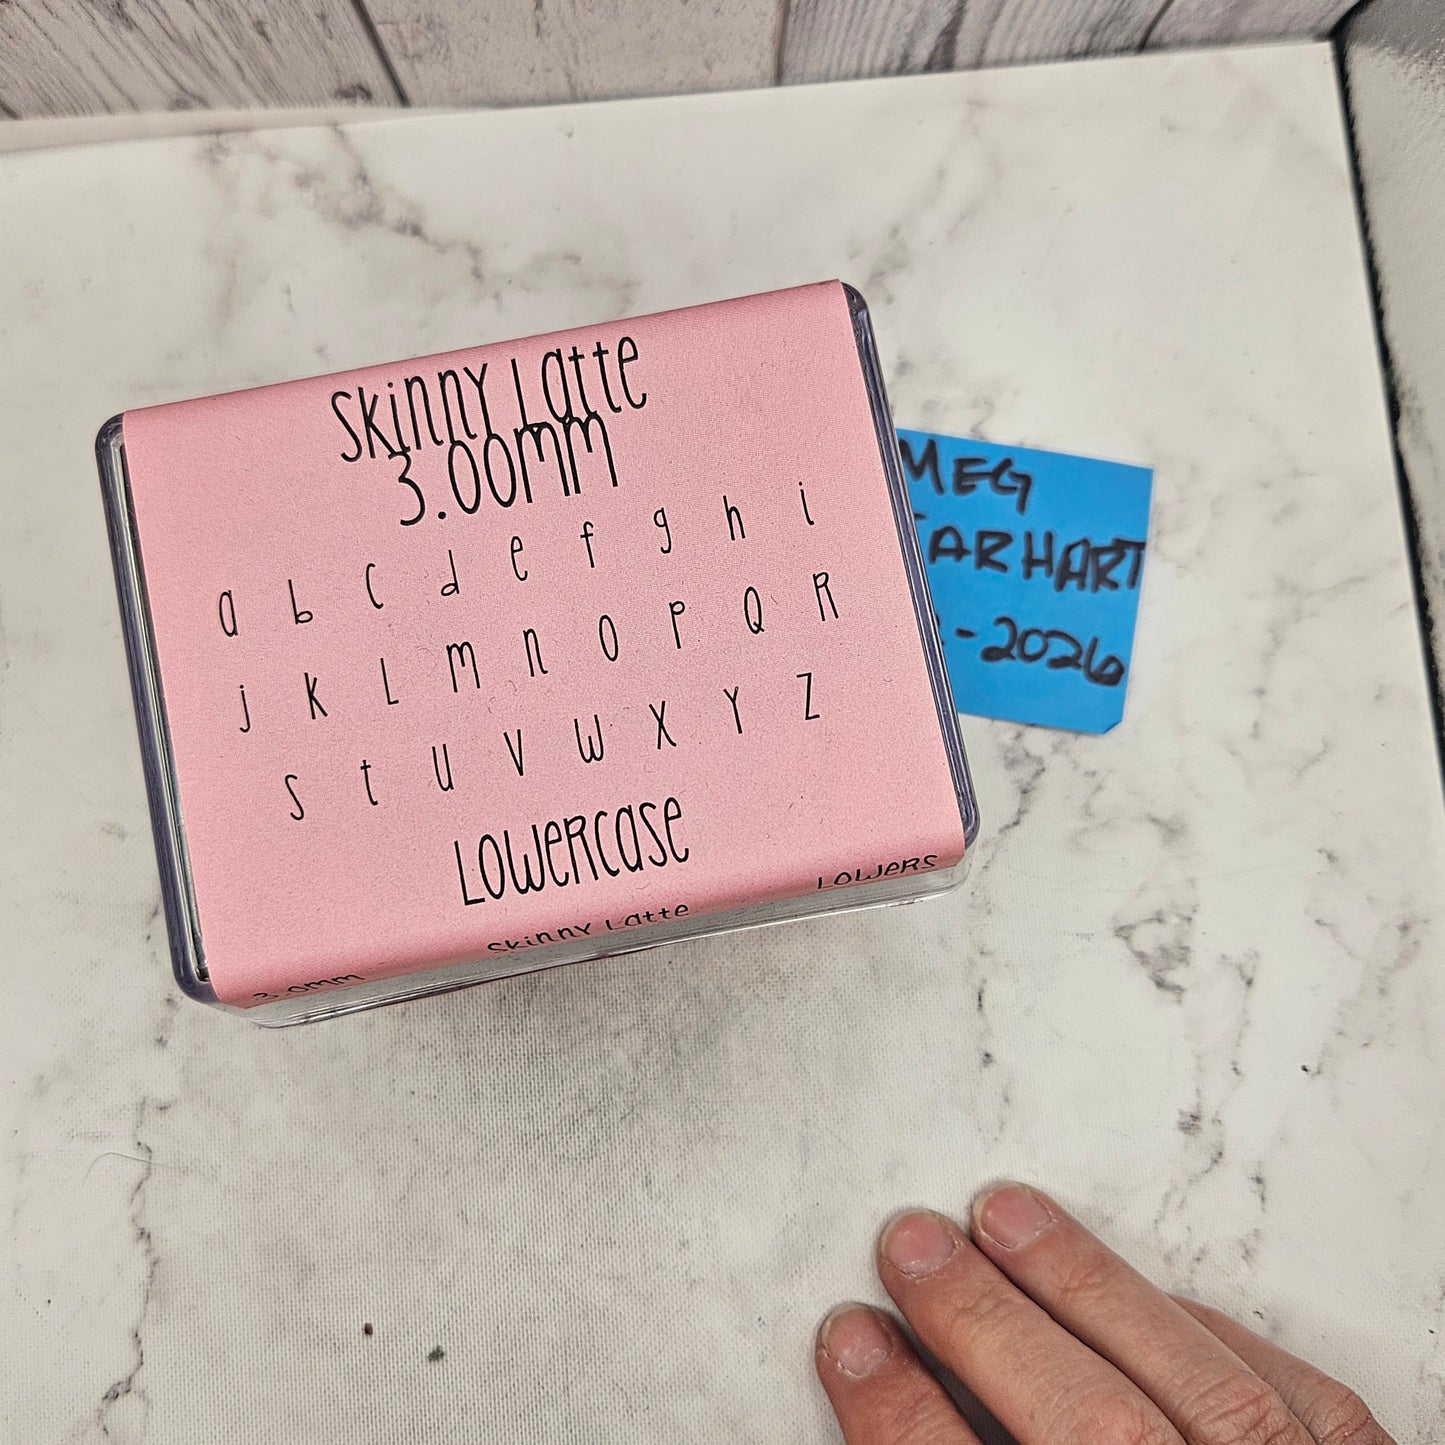 Skinny Latte
3.00mm
a b c d e f g h i
j k L m n o P Q R
s t u v w x Y Z
Lowercase
3.0mm Skinny Latte Lowers
MEG
ARHART
-2026